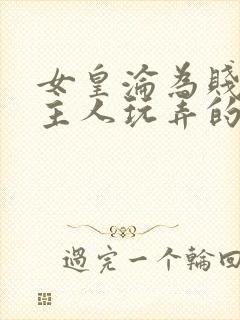 女皇淪為賤
主人玩弄的
過完一个輪回